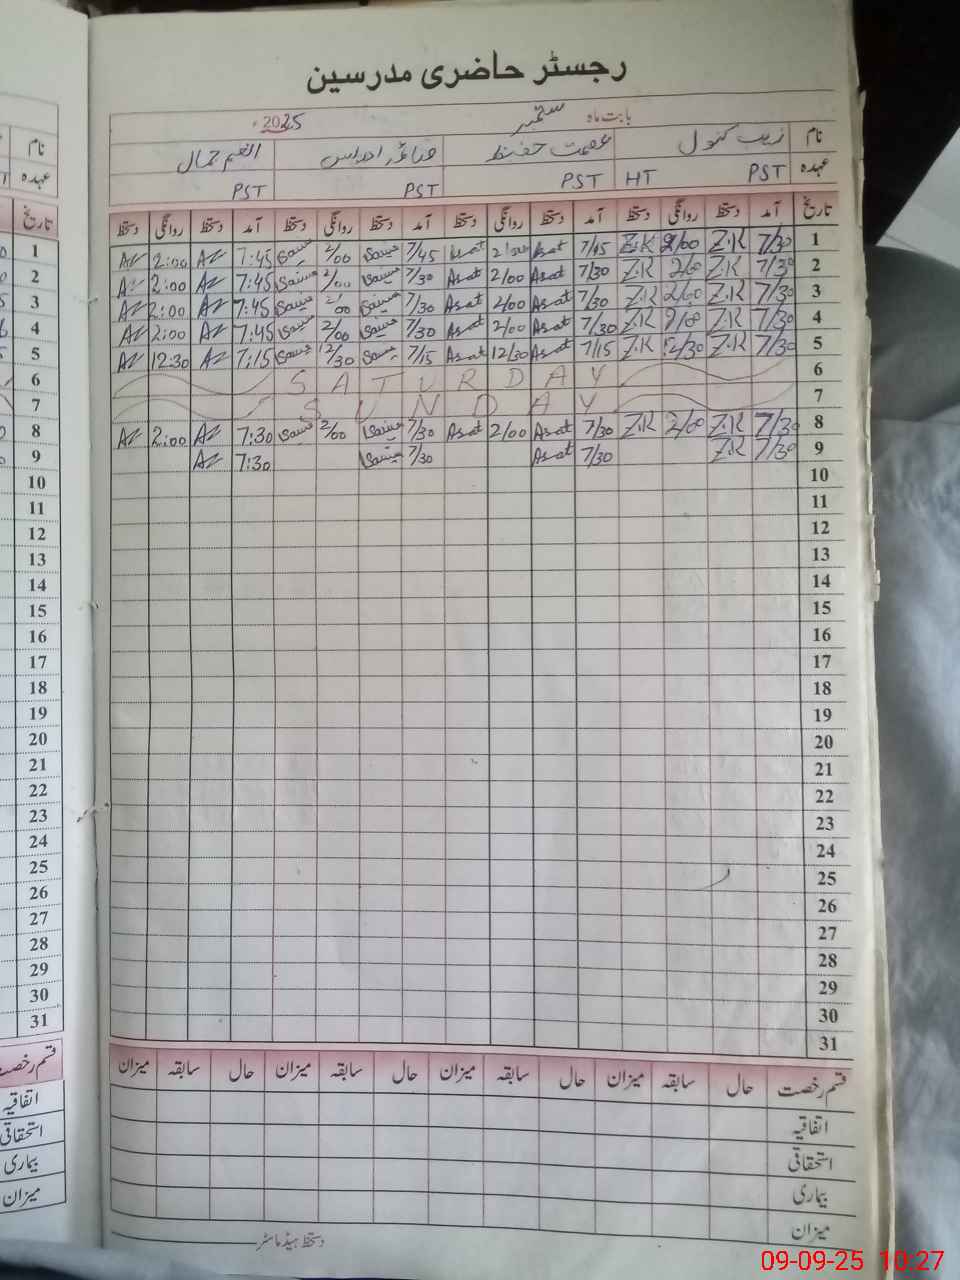 رجسٹر حاضری مدرسین
بابت ماہ ستمبر 2025ء
نام زیب کنول عصمت حفیظ انعم جمال
عہدہ PST HT PST PST PST
تاریخ آمد دستخط روانگی دستخط آمد دستخط روانگی دستخط آمد دستخط روانگی دستخط آمد دستخط روانگی دستخط
1 7/30 Z.K 2/00 Z.K 7/45 Asat 7/45 2/00 7:45 AZ 2:00 AZ
2 7/30 Z.K 2/00 Z.K 7/30 Asat 2/00 Asat 7/30 2/00 7:45 AZ 2:00 AZ
3 7/30 Z.K 2/00 Z.K 7/30 Asat 2/00 Asat 7/30 2/00 7:45 AZ 2:00 AZ
4 7/30 Z.K 2/00 Z.K 7/30 Asat 2/00 Asat 7/30 2/00 7:45 AZ 2:00 AZ
5 7/30 Z.K 12/30 Z.K 7/15 Asat 12/30 Asat 7/15 12/30 7:15 AZ 12:30 AZ
6 SATURDAY
7 SUNDAY
8 7/30 Z.K 2/00 Z.K 7/30 Asat 2/00 Asat 7/30 2/00 7:30 AZ 2:00 AZ
9 7/30 Z.K 7/30 Asat 7/30 7:30 AZ
10
11
12
13
14
15
16
17
18
19
20
21
22
23
24
25
26
27
28
29
30
31
قسم رخصت حال سابقہ میزان حال سابقہ میزان حال سابقہ میزان حال سابقہ میزان
اتفاقیہ
استحقاقی
بیماری
میزان
دستخط ہیڈ ماسٹر
نام
عہدہ
تاریخ
1
2
3
4
5
6
7
8
9
10
11
12
13
14
15
16
17
18
19
20
21
22
23
24
25
26
27
28
29
30
31
قسم رخصت
اتفاقیہ
استحقاقی
بیماری
میزان
09-09-25 10:27